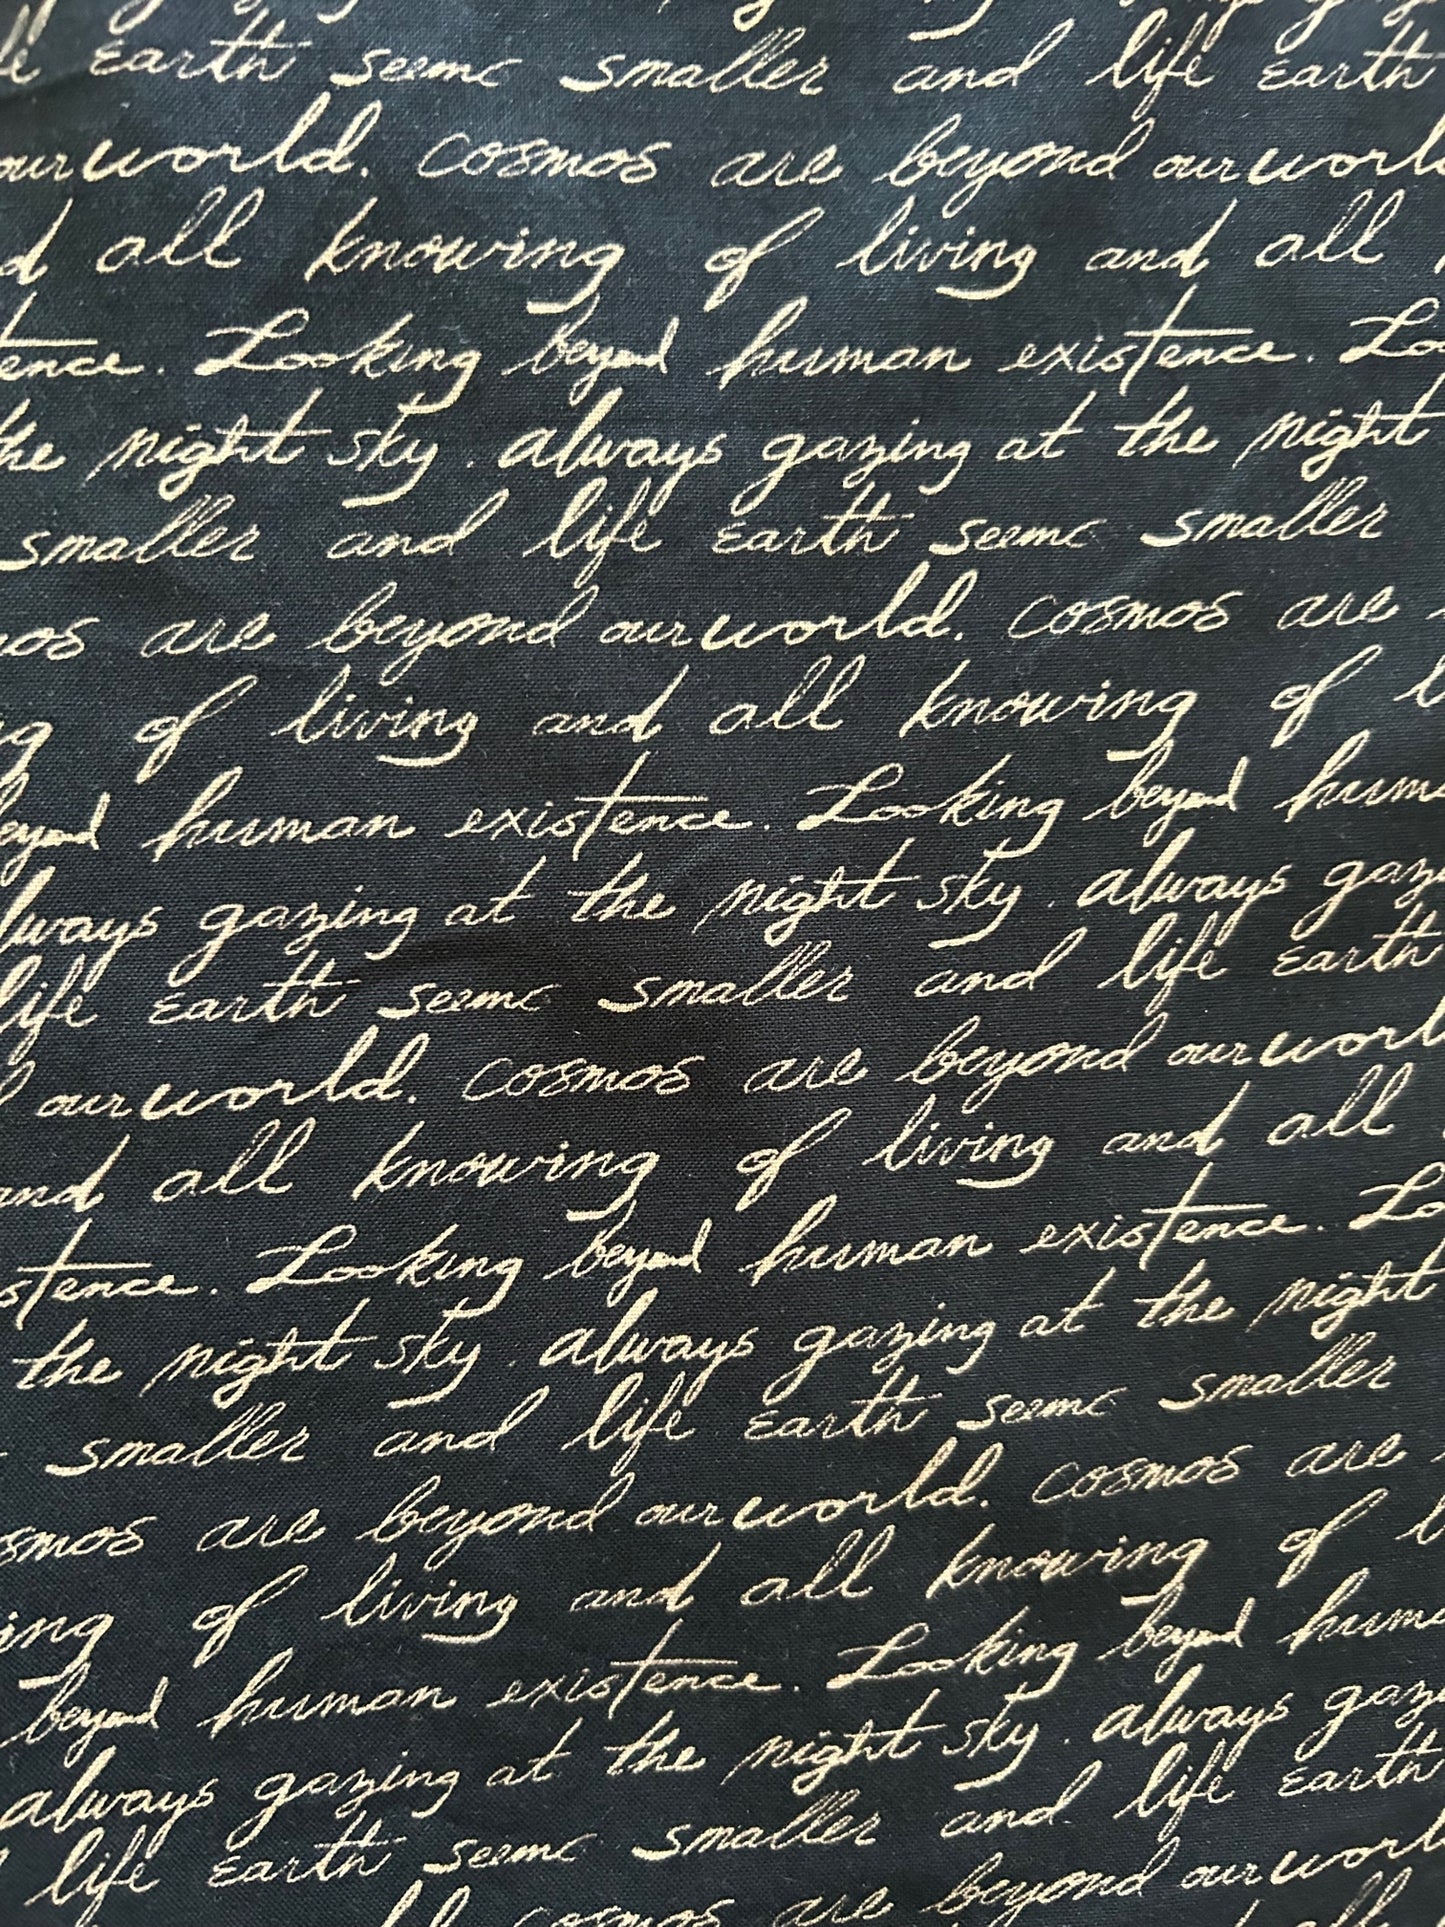 life earth seems smaller and life earth
our world. cosmos are beyond our world
and all knowing of living and all
tence. Looking beyond human existence. Loo
the night sky. always gazing at the night
smaller and life earth seems smaller
mos are beyond our world. cosmos are
ng of living and all knowing of l
beyond human existence. Looking beyond huma
always gazing at the night sky. always gazi
life earth seems smaller and life earth
our world. cosmos are beyond our world
and all knowing of living and all
stence. Looking beyond human existence. Loo
the night sky. always gazing at the night
smaller and life earth seems smaller
osmos are beyond our world. cosmos are
ing of living and all knowing of l
beyond human existence. Looking beyond huma
always gazing at the night sky. always gazi
life earth seems smaller and life earth
cosmos are beyond our world